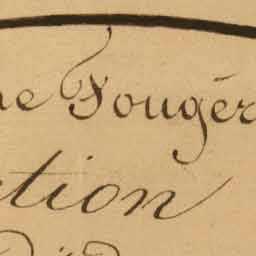 ne Fougér
ction